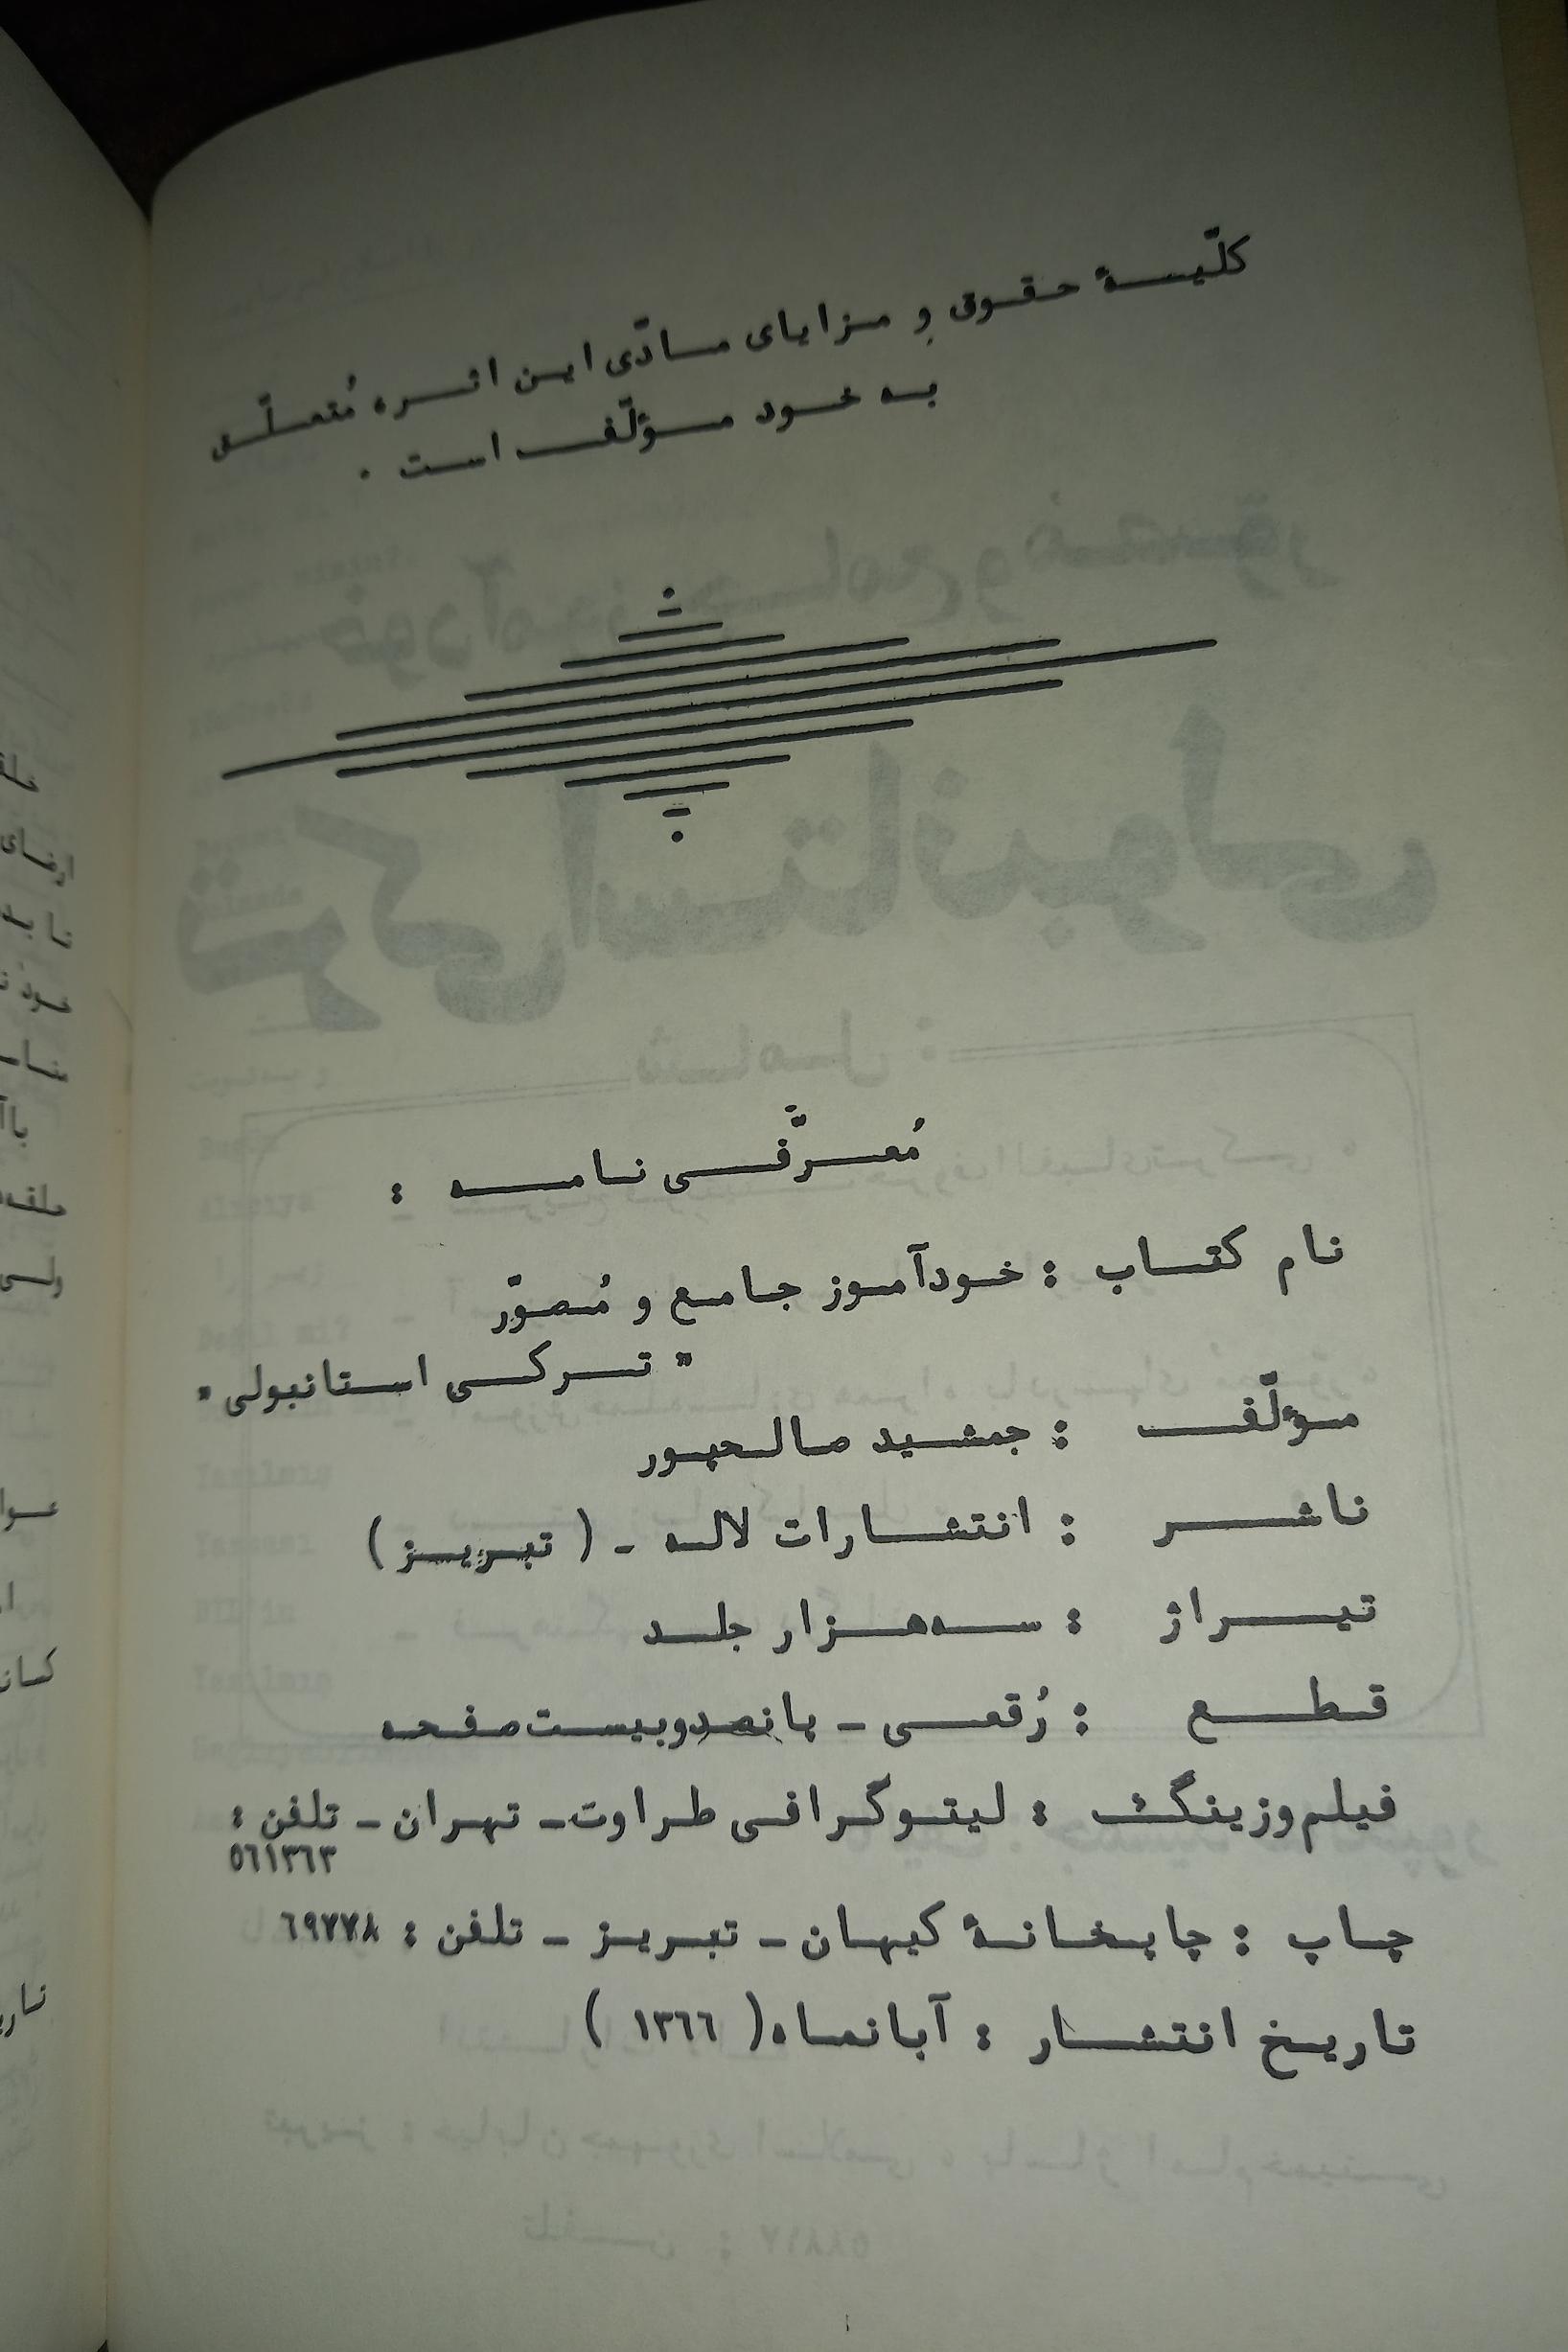 کلّیـــهٔ حقوق و مزایای مادّی این اثر، مُتعلّق
به خود مؤلّف است .
مُعرَّفی نامه :
نام کتاب : خودآموز جامع و مُصوّر
" ترکی استانبولی "
مؤلّف : جمشید صالحپور
ناشر : انتشارات لاله - ( تبریز )
تیراژ : سه‌هزار جلد
قطع : رُقعی - پانصدوبیست صفحه
فیلم وزینگ : لیتوگرافی طراوت - تهران - تلفن :
٥٦١٣٦٣
چاپ : چاپخانهٔ کیهان - تبریز - تلفن : ٦٩٧٧٨
تاریخ انتشار : آبانماه ( ١٣٦٦ )